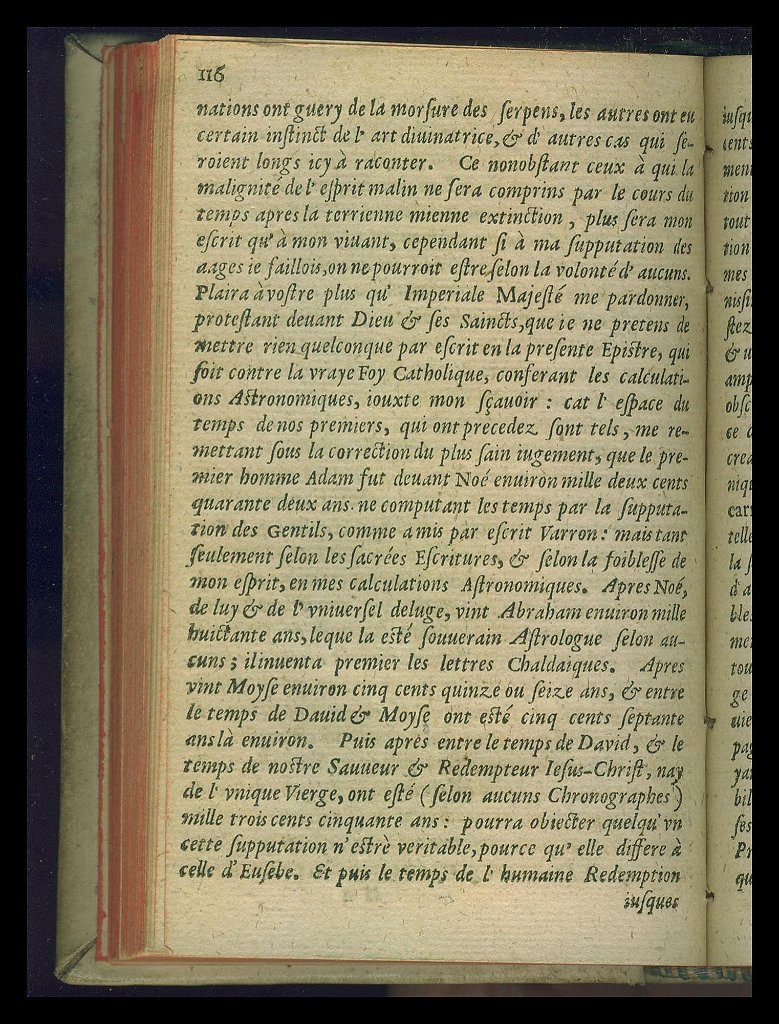 116
nations ont guery de la morſure des ſerpens, les autres ont eu
certain inſtinct de l' art diuinatrice, & d' autres cas qui ſe-
roient longs icy à raconter. Ce nonobſtant ceux à qui la
malignité de l' eſprit malin ne ſera comprins par le cours du
temps apres la terrienne mienne extinction, plus ſera mon
eſcrit qu' à mon viuant, cependant ſi à ma ſupputation des
aages ie faillois, on ne pourroit eſtre ſelon la volonté d' aucuns.
Plaira à voſtre plus qu' Imperiale Majeſté me pardonner,
proteſtant deuant Dieu & ſes Saincts, que ie ne pretens de
mettre rien quelconque par eſcrit en la preſente Epiſtre, qui
ſoit contre la vraye Foy Catholique, conferant les calculati-
ons Aſtronomiques, iouxte mon ſçauoir : cat l' eſpace du
temps de nos premiers, qui ont precedez ſont tels, me re-
mettant ſous la correction du plus ſain iugement, que le pre-
mier homme Adam fut deuant Noé enuiron mille deux cents
quarante deux ans. ne computant les temps par la ſupputa-
tion des Gentils, comme a mis par eſcrit Varron : mais tant
ſeulement ſelon les ſacrées Eſcritures, & ſelon la foibleſſe de
mon eſprit, en mes calculations Aſtronomiques. Apres Noé,
de luy & de l' vniuerſel deluge, vint Abraham enuiron mille
huictante ans, leque la eſté ſouuerain Aſtrologue ſelon au-
cuns ; il inuenta premier les lettres Chaldaiques. Apres
vint Moyſe enuiron cinq cents quinze ou ſeize ans, & entre
le temps de Dauid & Moyſe ont eſté cinq cents ſeptante
ans là enuiron. Puis apres entre le temps de David, & le
temps de noſtre Sauueur & Redempteur Ieſus-Chriſt, nay
de l' vnique Vierge, ont eſté ( ſelon aucuns Chronographes )
mille trois cents cinquante ans : pourra obiecter quelqu' vn
cette ſupputation n' eſtrè veritable, pource qu' elle differe à
celle d' Euſebe. Et puis le temps de l' humaine Redemption
iuſques